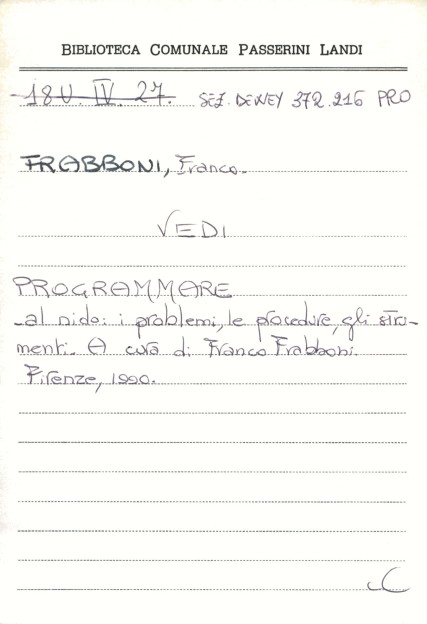 BIBLIOTECA COMUNALE PASSERINI LANDI
18U. IV. 27. SEZ. DEWEY 372.216 PRO
FRABBONI, Franco.
VEDI
PROGRAMMARE
al nido: i problemi, le procedure, gli stru-
menti. A cura di Franco Frabboni.
Firenze, 1990.